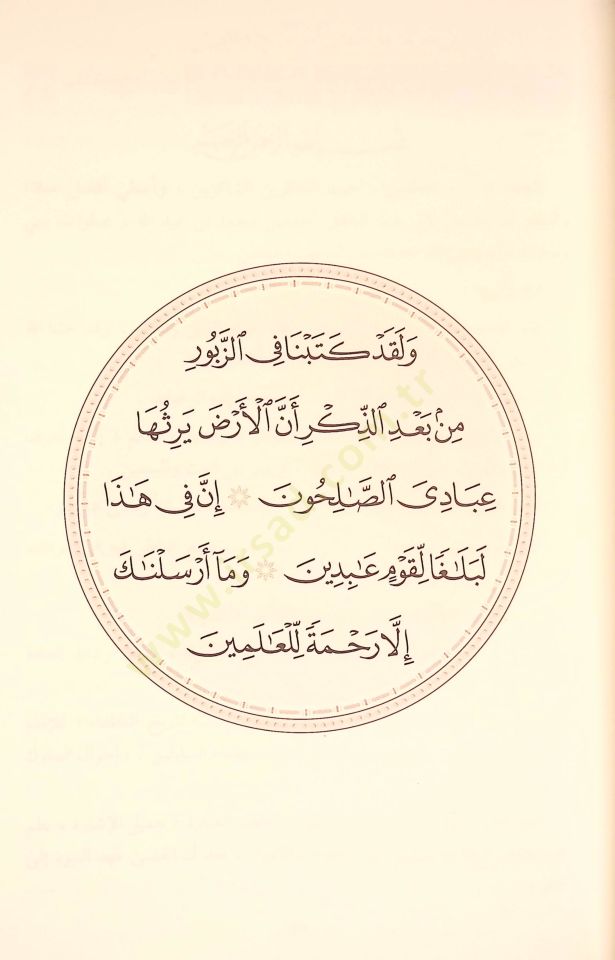 وَلَقَدْ كَتَبْنَا فِي ٱلزَّبُورِ
مِنۢ بَعْدِ ٱلذِّكْرِ أَنَّ ٱلْأَرْضَ يَرِثُهَا
عِبَادِىَ ٱلصَّٰلِحُونَ ۞ إِنَّ فِي هَٰذَا
لَبَلَٰغًا لِّقَوْمٍ عَٰبِدِينَ ۞ وَمَآ أَرْسَلْنَٰكَ
إِلَّا رَحْمَةً لِّلْعَٰلَمِينَ